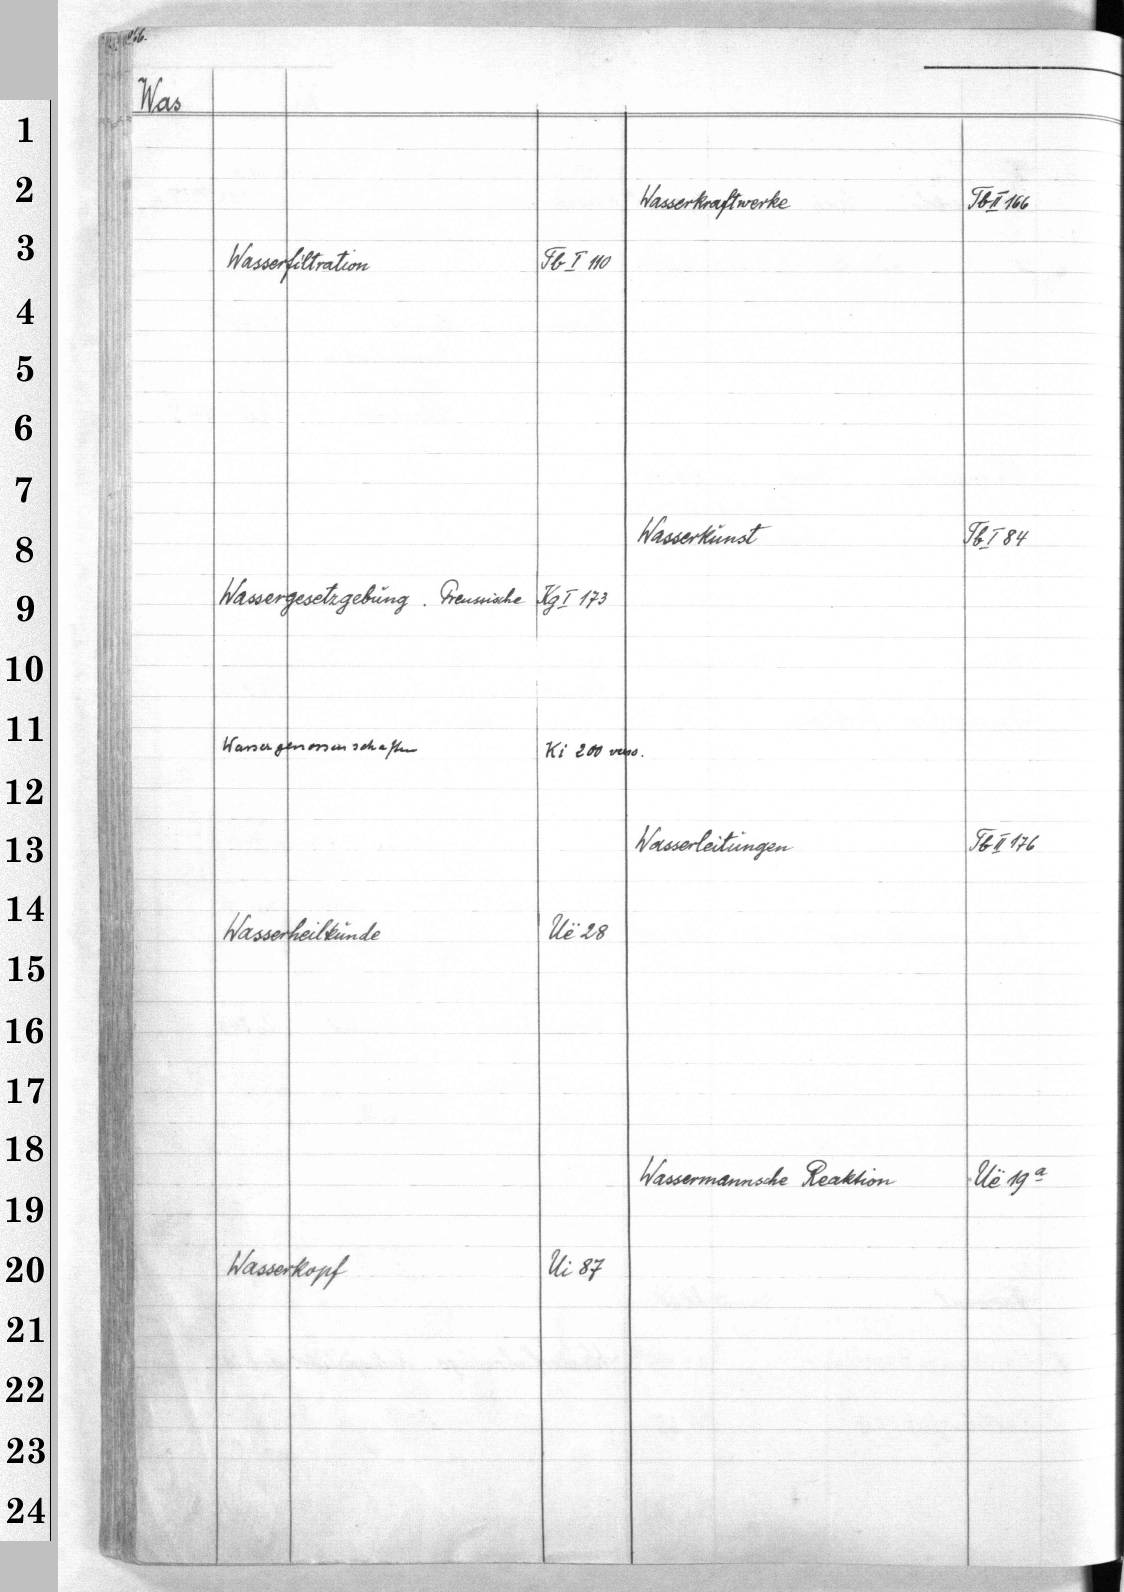 Was
1
2
Wasserkraftwerke Tb II 166
3
Wasserfiltration Tb I 110
4
5
6
7
8
Wasserkŭnst Tb I 84
9
Wassergesetzgebŭng . Preussische Kg I 173
10
11
Wassergenossenschaften Ki 200 verso.
12
13
Wasserleitŭngen Tb II 176
14
Wasserheilkŭnde Uë 28
15
16
17
18
Wassermannsche Reaktion Uë 19a
19
20
Wasserkopf Ui 87
21
22
23
24